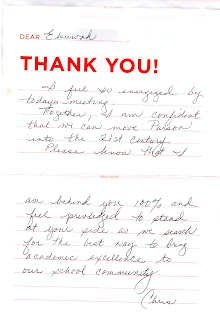 DEAR
THANK YOU!
I feel so energized by
todays meeting.
Together, I am confident
that we can move Parson
into the 21st century.
Please know that I
am behind you 100% and
feel privileged to stand
at your side as we search
for the best way to bring
academic excellence to
our school community.
Chris